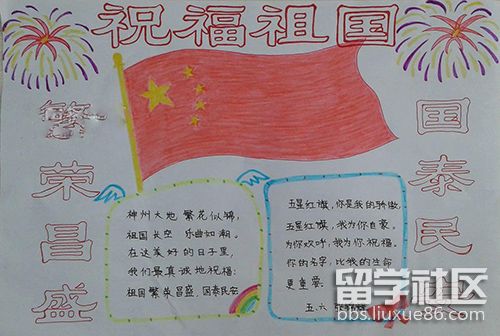 祝福祖国
繁荣昌盛
国泰民
神州大地 繁花似锦，
祖国长空 乐曲如潮。
在这美好的日子里，
我们最真诚地祝福：
祖国繁荣昌盛，国泰民安
五星红旗，你是我的骄傲，
五星红旗，我为你自豪，
为你欢呼，我为你祝福，
你的名字，比我的生命
更重要。
五.六
留学社区
bbs.liuxue86.com